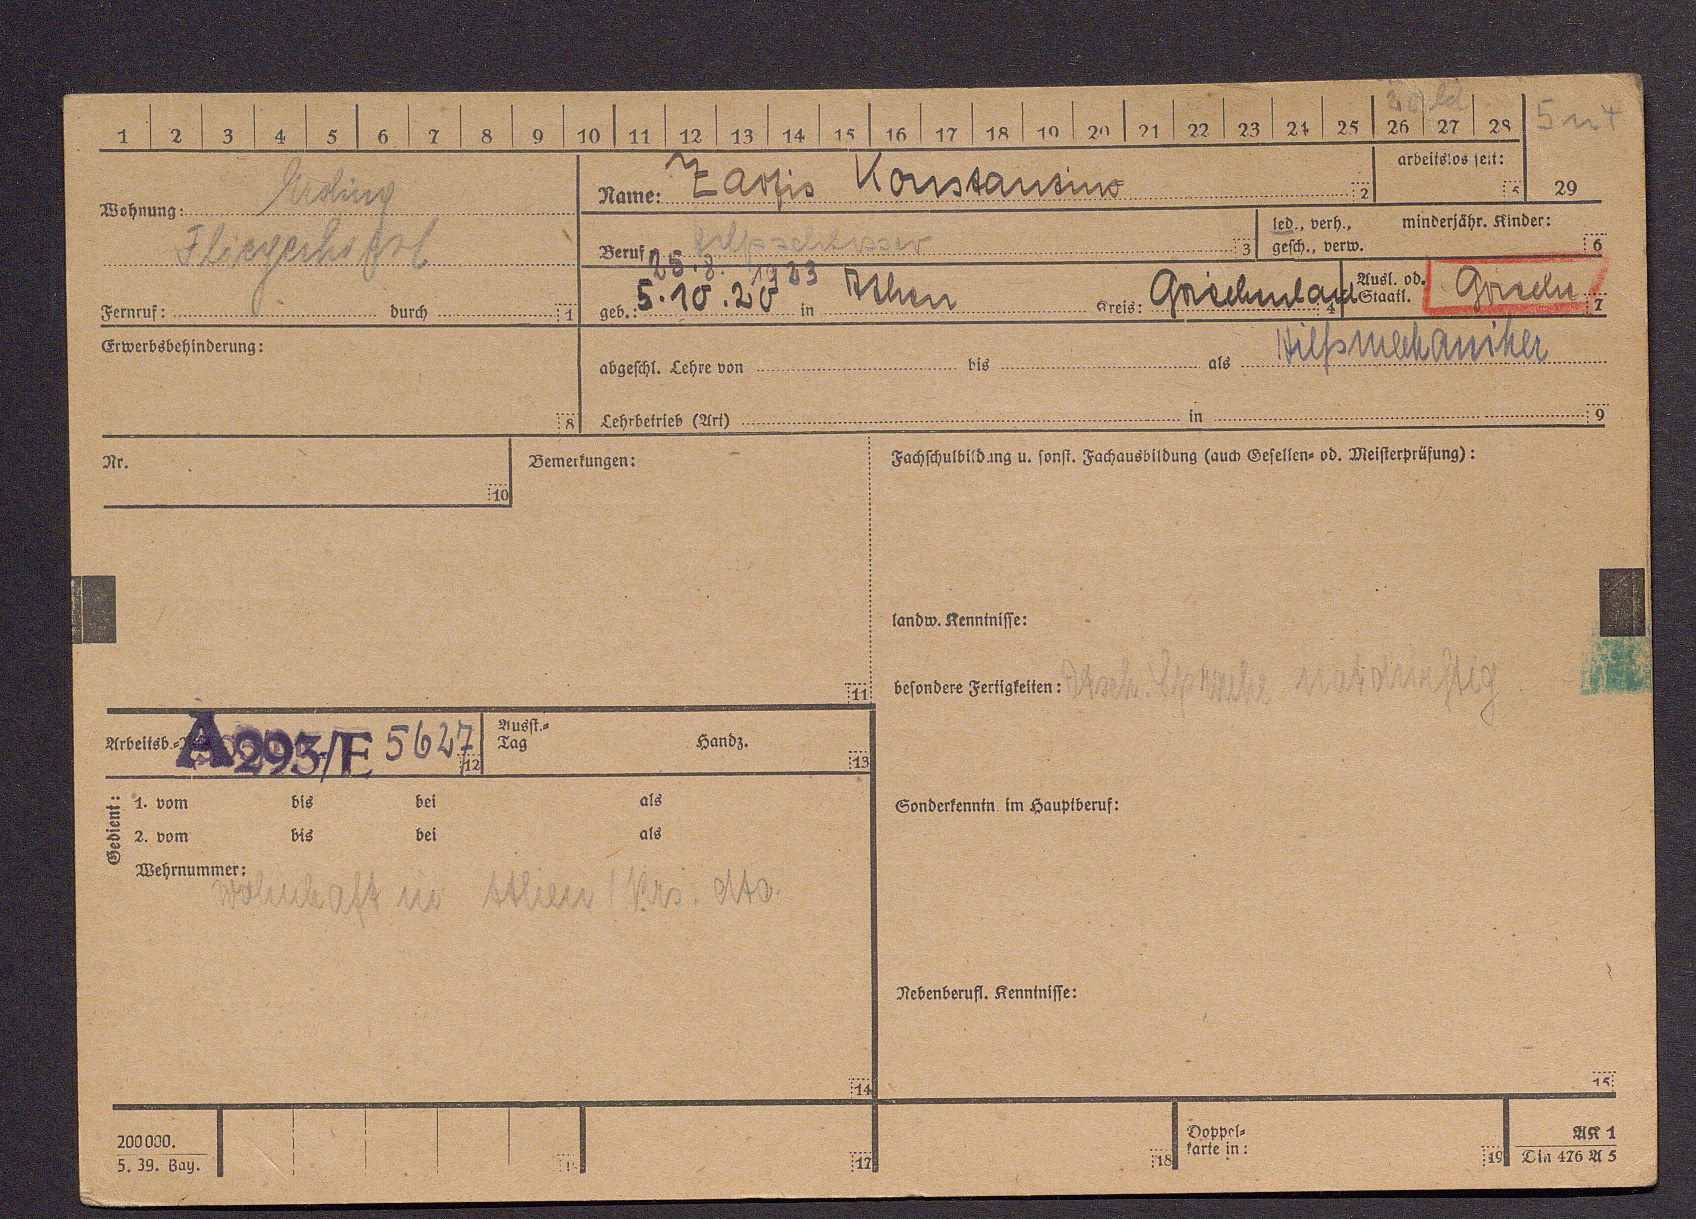 1 2 3 4 5 6 7 8 9 10 11 12 13 14 15 16 17 18 19 20 21 22 23 24 25 26 27 28
arbeitslos seit: 5
29
Wohnung: Erding
Fliegerhorst
Fernruf: durch 1
Name: Zarfis Konstantino 2
Beruf Hilfsschlosser 3
led., verh., gesch., verw. minderjähr. Kinder: 6
25.8.1923
geb.: 5.10.20 in Athen Kreis: Grichenland 4
Ausl. od. Staatl. Grieche 7
Erwerbsbehinderung: 8
abgeschl. Lehre von bis als Hilfsmechaniker
Lehrbetrieb (Art) in 9
Nr. 10
Bemerkungen: 11
Fachschulbildung u. sonst. Fachausbildung (auch Gesellen- od. Meisterprüfung):
landw. Kenntnisse:
besondere Fertigkeiten: Dtsch. Sprache notdürftig
Arbeitsb.-Nr. A 293/E 5627 12
Ausst.-Tag Handz. 13
Gedient:
1. vom bis bei als
2. vom bis bei als
Wehrnummer:
wohnhaft in Athen / Krs. dto.
14
Sonderkenntn. im Hauptberuf:
Nebenberufl. Kenntnisse:
15
200000.
5. 39. Bay.
17
18
Doppel-
karte in: 19
AK 1
Din 476 A 5